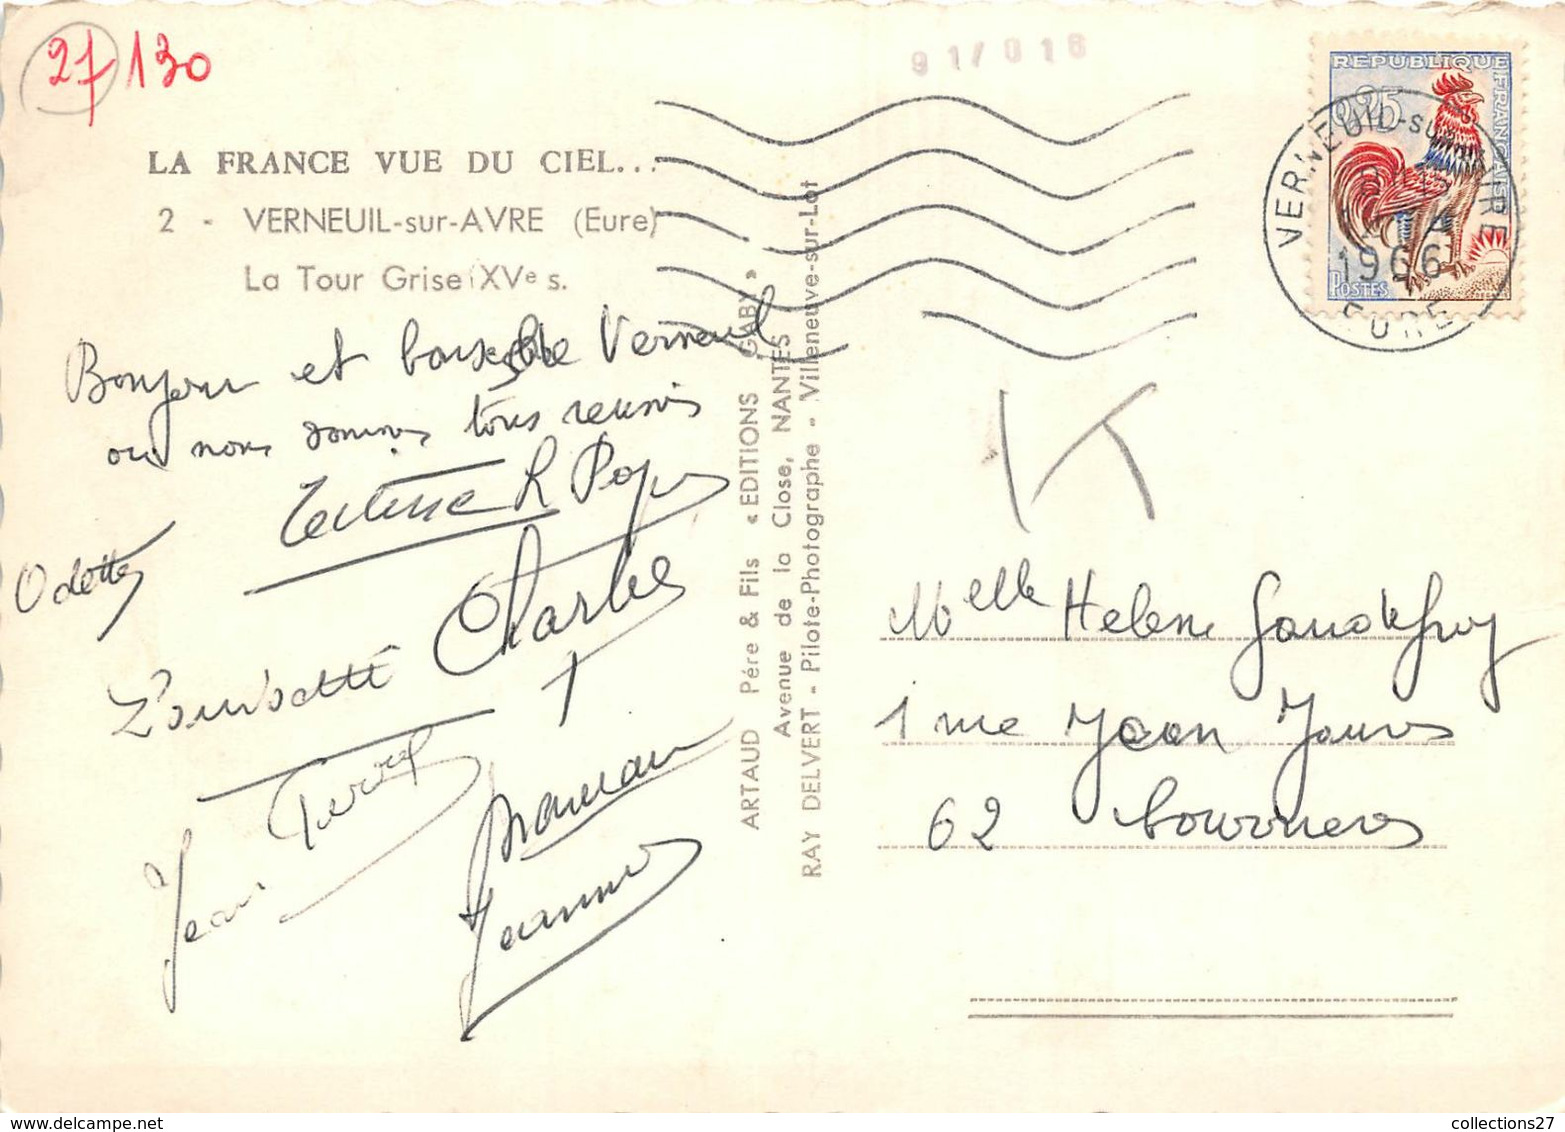 27130
91/018
LA FRANCE VUE DU CIEL...
2 - VERNEUIL-sur-AVRE (Eure)
La Tour Grise (XVe s.
Bonjour et baisers de Verneuil
où nous sommes tous reunis
Odette
Charles
Pierre
Jean
Maman
Jeanne
ARTAUD Père & Fils « EDITIONS GABY »
Avenue de la Close, NANTES
RAY DELVERT - Pilote-Photographe - Villeneuve-sur-Lot
REPUBLIQUE FRANÇAISE
0,25
POSTES
VERNEUIL-SUR-AVRE
1966
EURE
Melle Helene
1 rue Jean Jaures
62
collections27